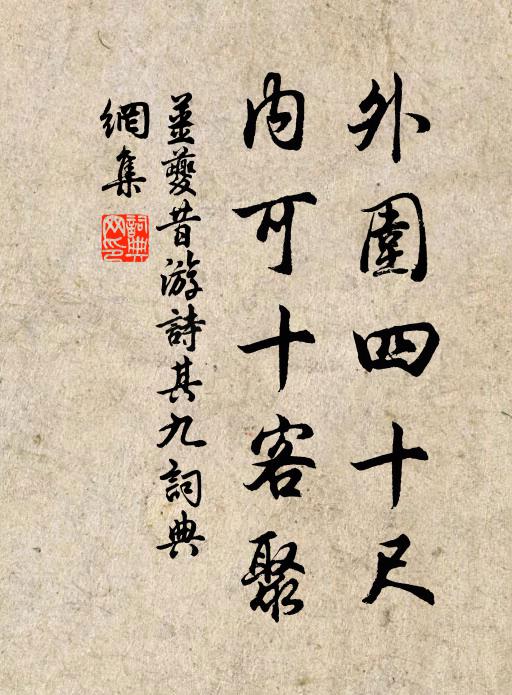 外圍四十尺
內可十客聚
姜夔昔游詩其九詞典
網集
詞典網印